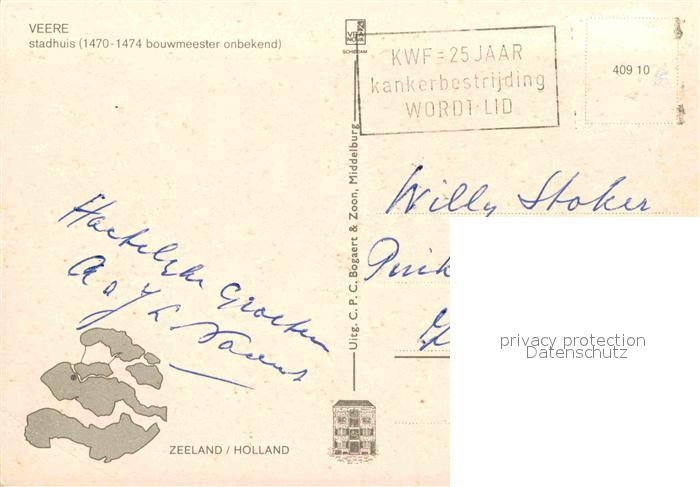 VEERE
stadhuis (1470-1474 bouwmeester onbekend)
VITA NOVA
SCHIEDAM
KWF = 25 JAAR
kankerbestrijding
WORDT LID
409 10
Uitg. C. P. C. Bogaert & Zoon, Middelburg
Hartelijke Groeten
Willy Stoker
privacy protection
Datenschutz
ZEELAND / HOLLAND